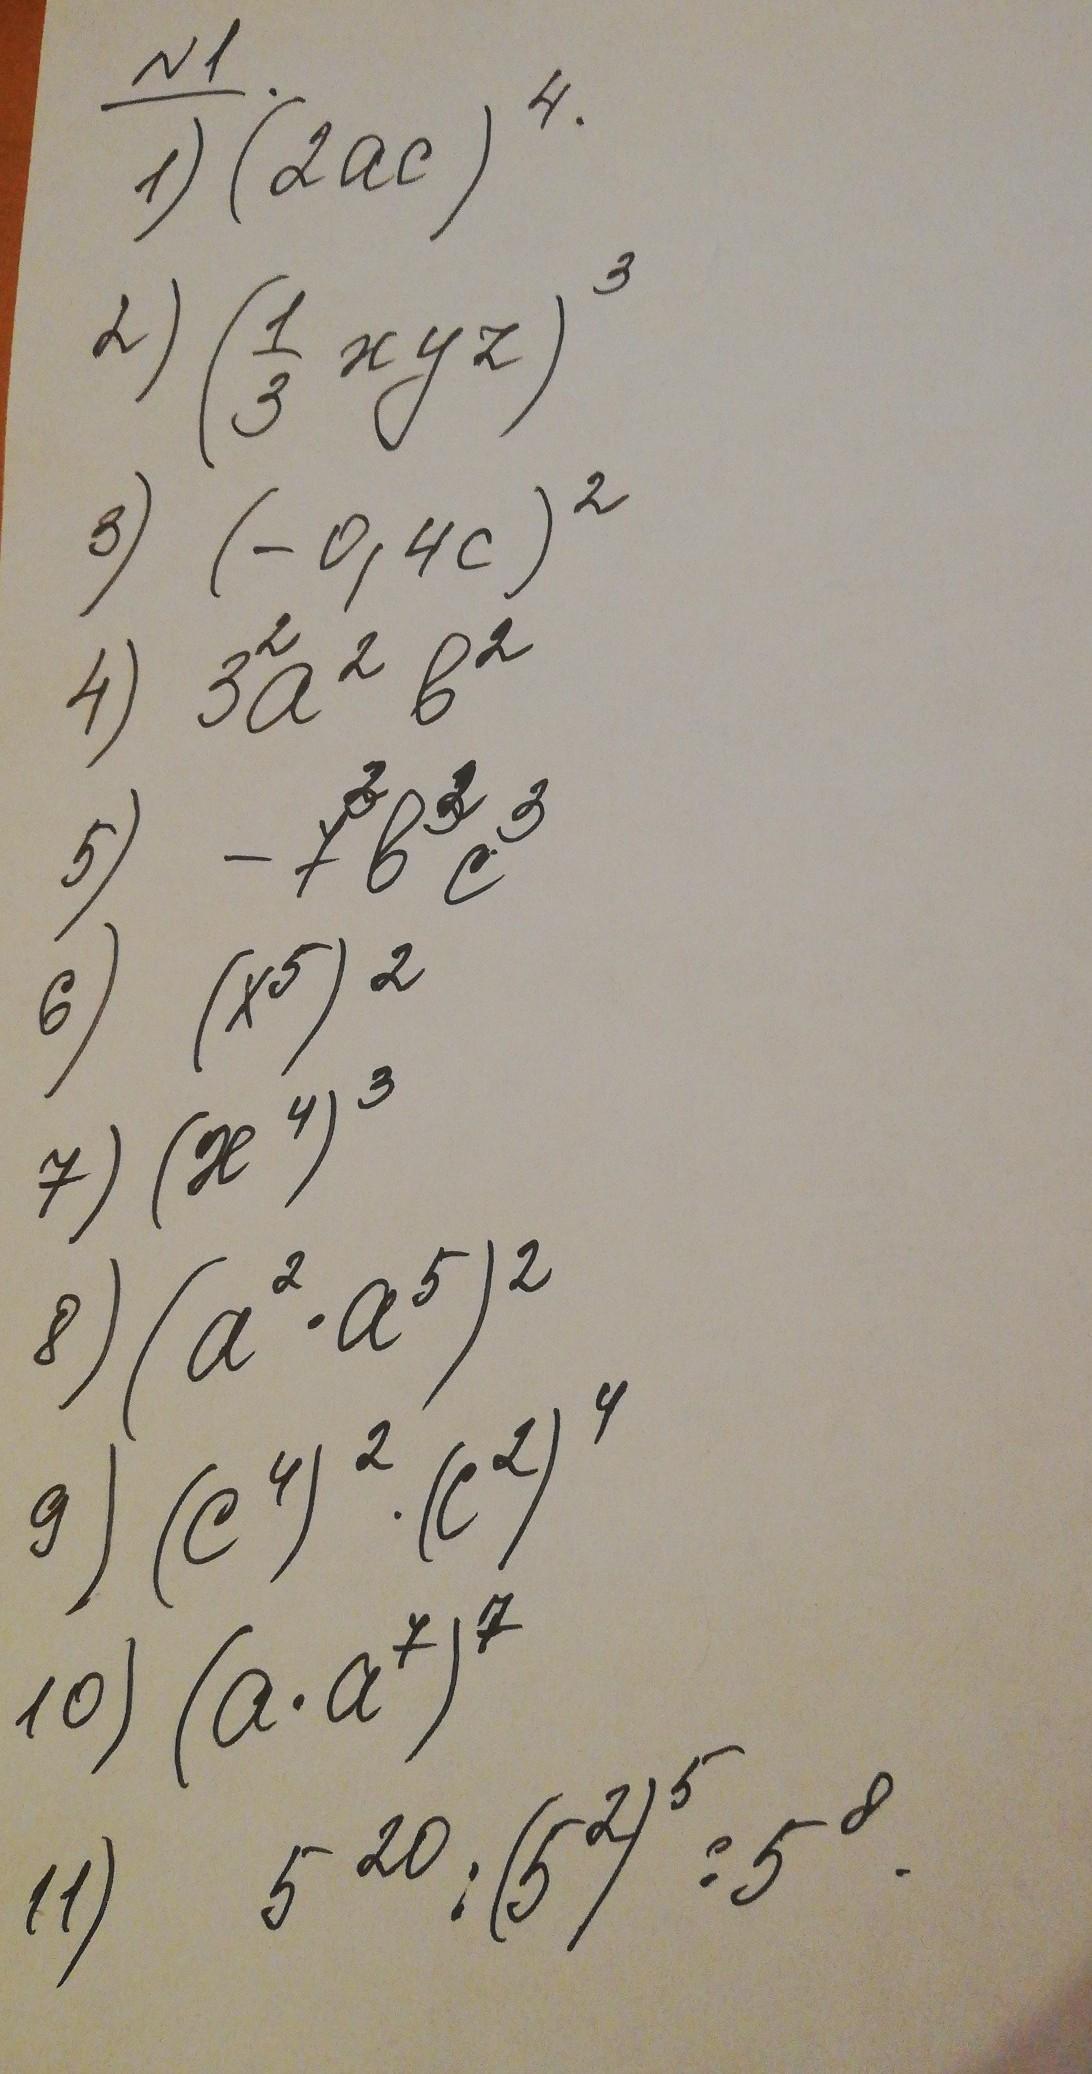 №1.
1) (2ac)⁴.
2) (1/3 xyz)³
3) (-0,4c)²
4) 3²a²b²
5) -7³b³c³
6) (x⁵)²
7) (x⁴)³
8) (a²·a⁵)²
9) (c⁴)²·(c²)⁴
10) (a·a⁷)⁷
11) 5²⁰:(5²)⁵:5⁸.